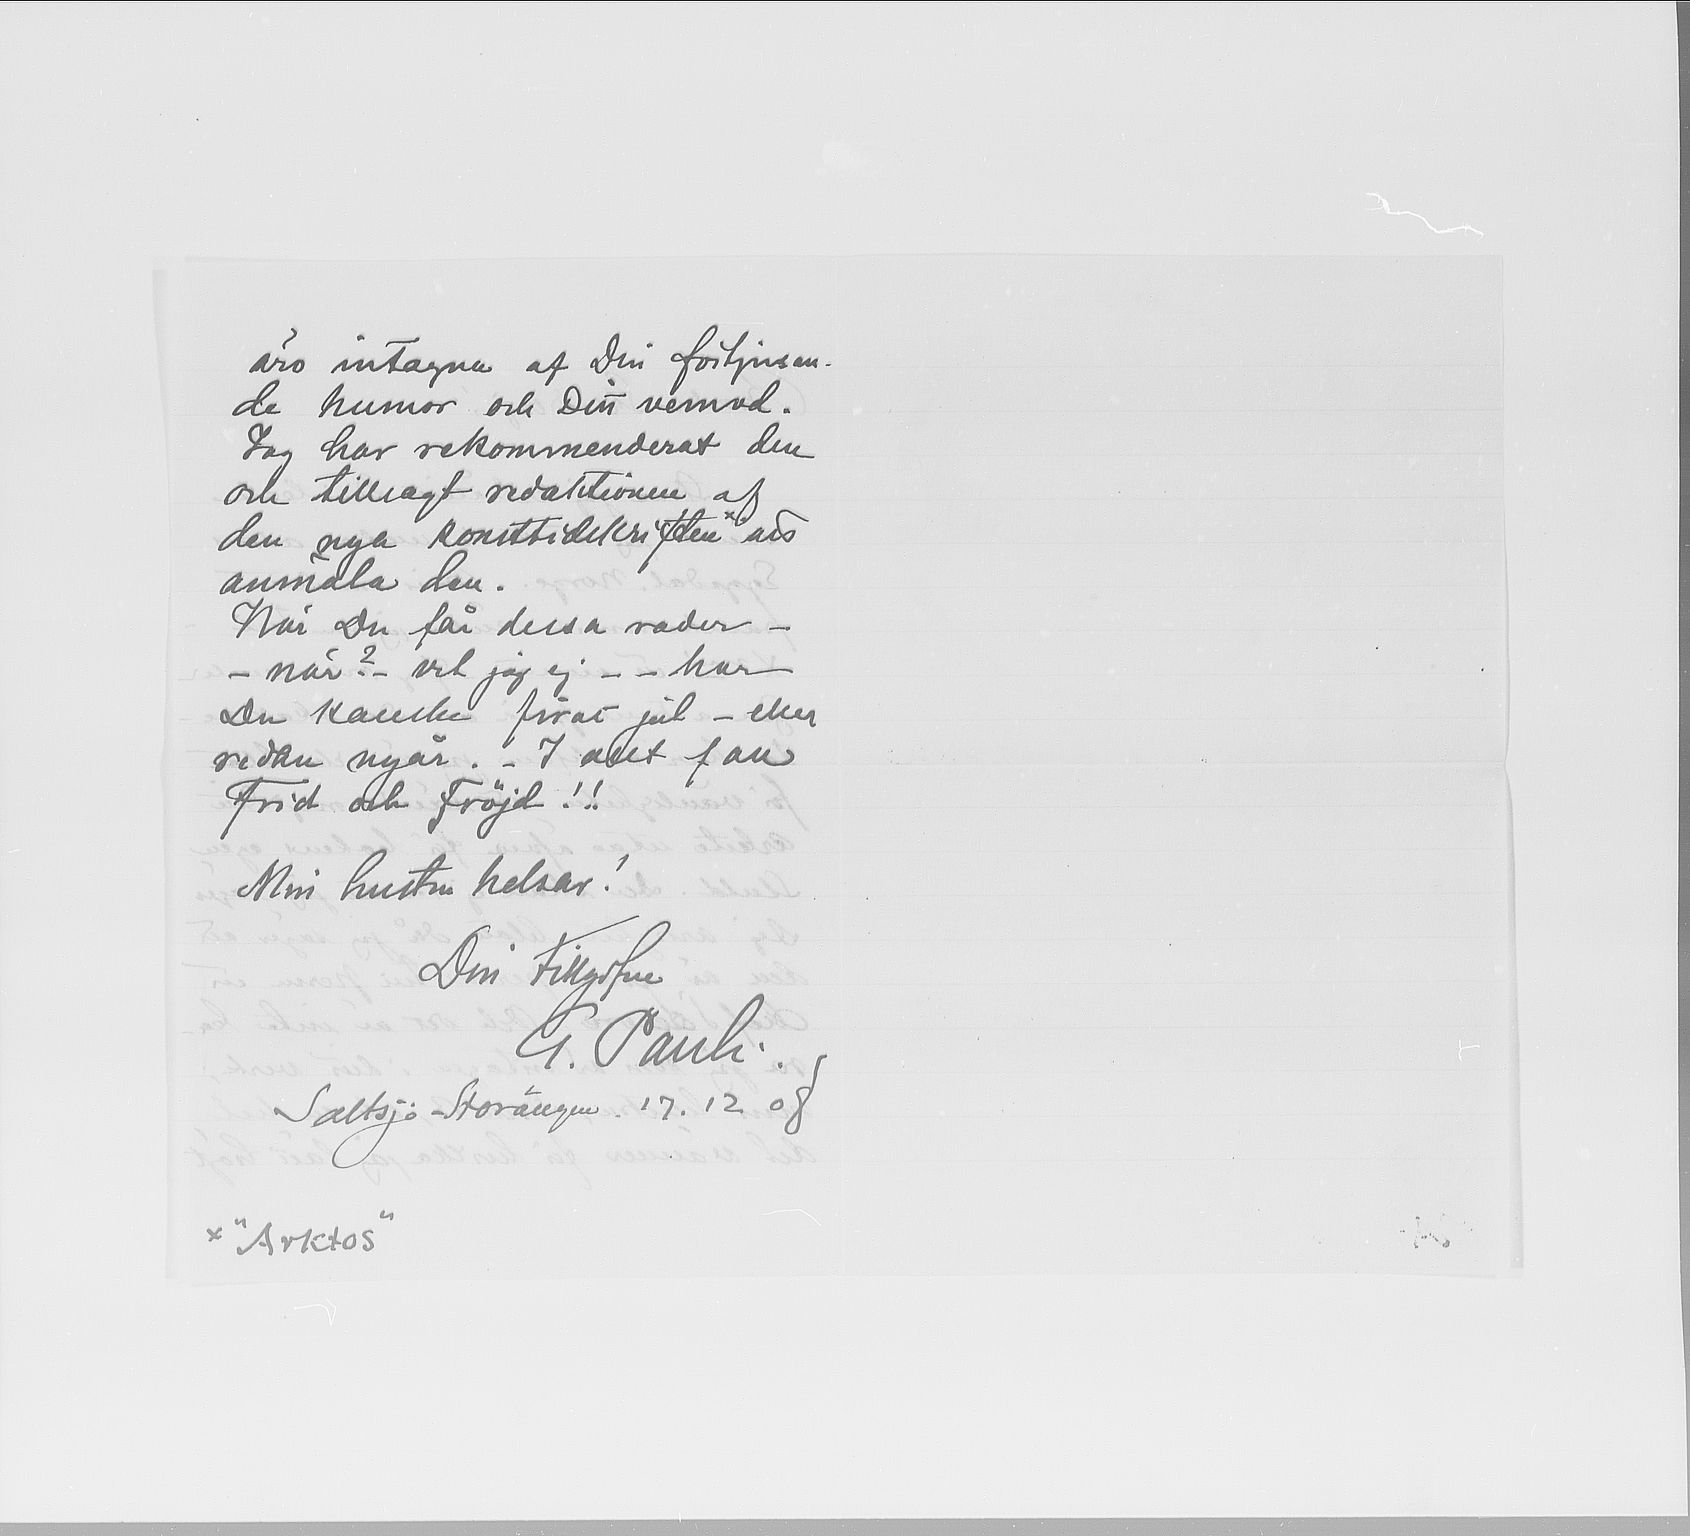 äro intagna af Din förtjusan-
de humor och Ditt vemod.
Jag har rekommenderat den
och tillsagt redaktionen af
den nya konsttidskriften x att
anmäla den.
När Du får dessa rader –
– när? – vet jag ej – – har
Du kanske firat jul – eller
redan nyår. – I allt fall
Frid och Fröjd!!
Min hustru helsar!
Din tillgifne
G. Pauli.
Saltsjö-Storängen. 17. 12 08
x "Arktos"